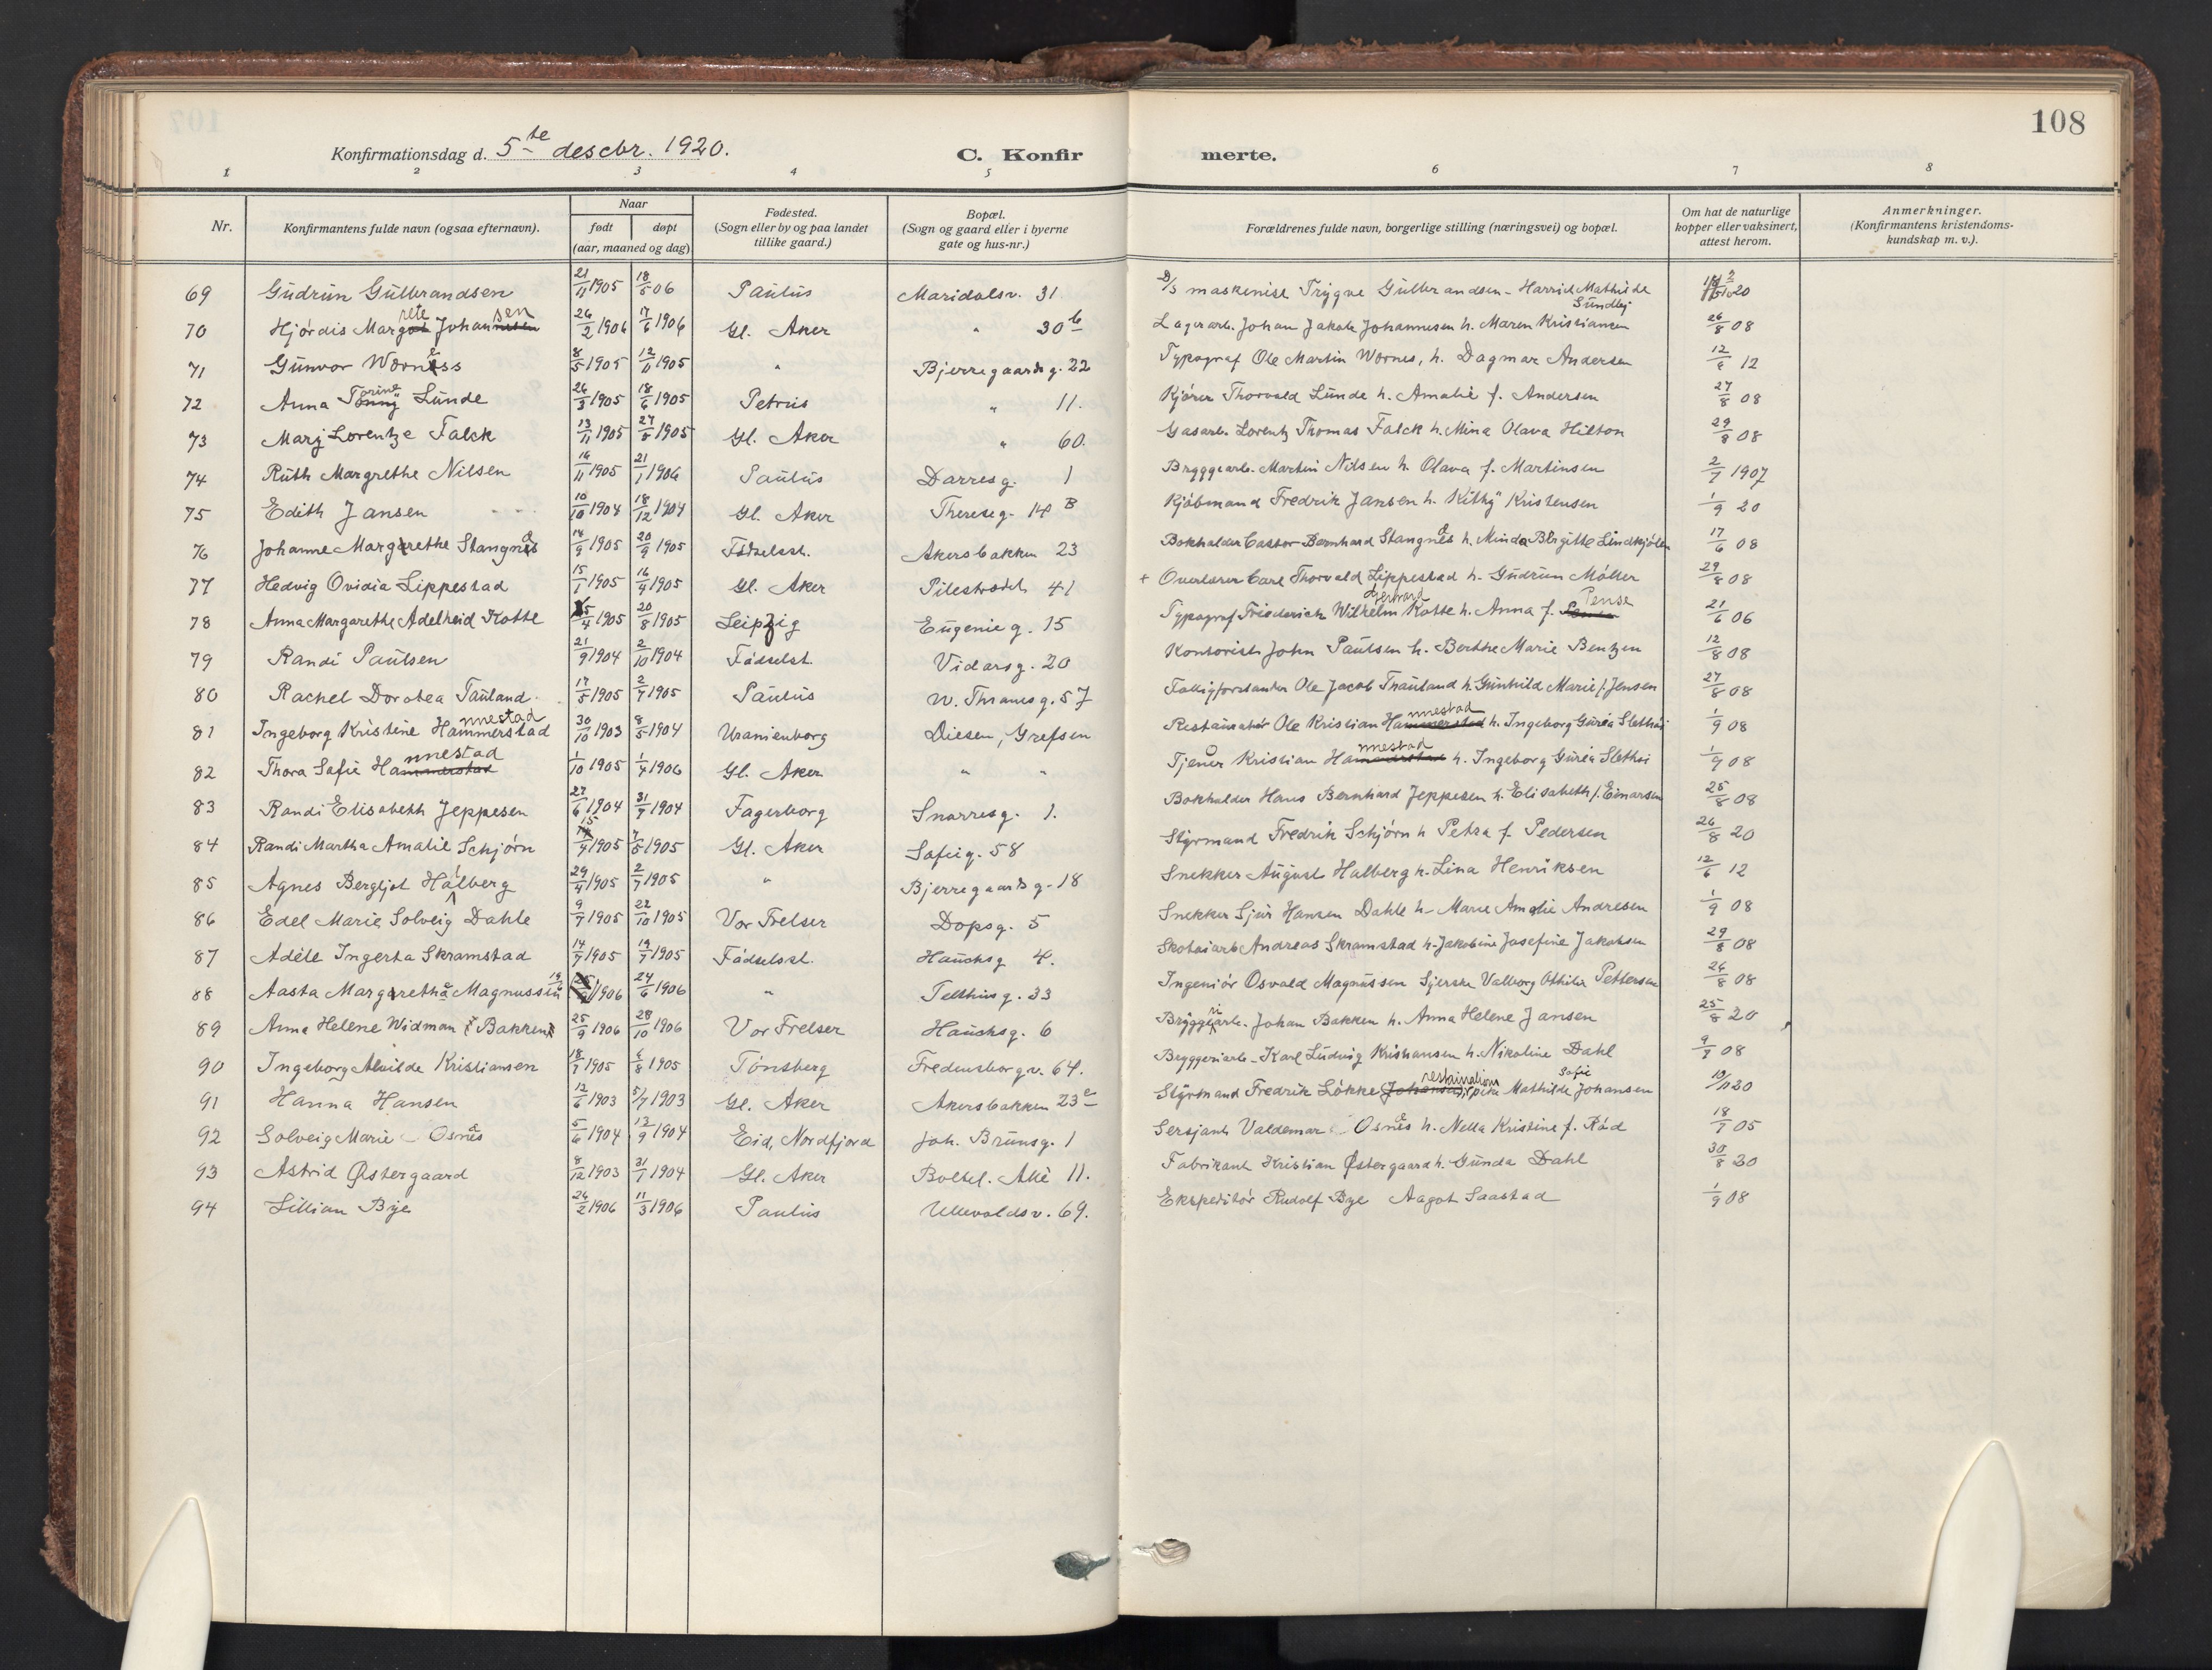 108
Konfirmationsdag d. 5te descbr. 1920.
C. Konfirmerte.
1 2 3 4 5 6 7 8
Nr.
Konfirmantens fulde navn (ogsaa efternavn).
Naar
født døpt
(aar, maaned og dag)
Fødested.
(Sogn eller by og paa landet
tillike gaard.)
Bopæl.
(Sogn og gaard eller i byerne
gate og hus-nr.)
Forældrenes fulde navn, borgerlige stilling (næringsvei) og bopæl.
Om hat de naturlige
kopper eller vaksinert,
attest herom.
Anmerkninger.
(Konfirmantens kristendoms-
kundskap m. v.).
69 Gudrun Gulbrandsen 21/11 1905 18/5 06 Paulus Maridalsv. 31 D/S maskenist Trygve Gulbrandsen - Harriet Mathilde Sundbÿ 20
70 Hjørdis Margrete Johansen 26/2 1906 17/6 1906 Gl. Aker " 30b Lagerarb. Johan Jakob Johannesen h. Maren Kristiansen 26/8 08
71 Gunvor Worness 8/5 1905 12/11 1905 " Bjerregaardsg. 22 Typograf Ole Martin Wornes, h. Dagmar Andersen 12/8 12
72 Anna Torine Lunde 26/3 1905 18/6 1905 Petrus " 11. Kjører Thorvald Lunde h. Amalie f. Andersen 27/8 08
73 Mary Lorentze Falck 13/11 1905 27/5 1905 Gl. Aker " 60. Gasarb. Lorentz Thomas Falck h. Mina Olava Hilton 29/8 08
74 Ruth Margrethe Nilsen 16/11 1905 21/1 1906 Paulus Darresg. 1 Bryggearb. Martin Nilsen h. Olava f. Martinsen 2/7 1907
75 Edith Jansen 10/10 1904 18/12 1904 Gl. Aker Thereseg. 14 B Kjøbmand Fredrik Jansen h. Kitty Kristensen 1/9 20
76 Johanne Margrethe Stangnes 14/9 1905 20/9 1905 Fødselsst. Akersbakken 23 Bokholder Castor Bernhard Stangnes h. Minda Birgitte Lindkjølen 17/6 08
77 Hedvig Ovidia Lippestad 15/1 1905 16/4 1905 Gl. Aker Pilestrædet 41 + Overlærer Carl Thorvald Lippestad h. Gudrun Møller 29/8 08
78 Anna Margarethe Adelheid Kotte 5/4 1905 20/8 1905 Leipzig Eugenie g. 15 Typograf Friederich Wilhelm Gerhard Kotte h. Anna f. Pense 21/6 06
79 Randi Paulsen 21/9 1904 2/10 1904 Fødselst. Vidarsg. 20 Kontorist John Paulsen h. Berthe Marie Bentzen 12/8 08
80 Rachel Dorothea Tauland 17/5 1905 2/7 1905 Paulus W. Thranesg. 57 Fattigforstander Ole Jacob Thauland h. Gunhild Marie f. Jensen 27/8 08
81 Ingeborg Kristine Hannestad 30/10 1903 8/5 1904 Uranienborg Diesen, Grefsen Restauratør Ole Kristian Hannestad h. Ingeborg Gurea Slethei 1/9 08
82 Thora Sofie Hannestad 1/10 1905 1/4 1906 Gl. Aker " " Tjener O Kristian Hannestad h. Ingeborg Gurea Slethei 1/9 08
83 Randi Elisabeth Jeppesen 27/6 1904 31/7 1904 Fagerborg Snorresg. 1. Bokholder Hans Bernhard Jeppesen h. Elisabeth f. Einarsen 25/8 08
84 Randi Martha Amalie Schjørn 15/4 1905 7/5 1905 Gl. Aker Sofieg. 58 Styrmand Fredrik Schjørn h Petra f. Pedersen 26/8 20
85 Agnes Bergljot Halberg 29/4 1905 2/7 1905 " Bjerregaardsg. 18 Snekker August Halberg h. Lina Henriksen 12/6 12
86 Edel Marie Solveig Dahle 9/7 1905 22/10 1905 Vor Frelser Dopsg. 5 Snekker Sjur Hansen Dahle h. Marie Amalie Andresen 1/9 08
87 Adèle Ingerta Skramstad 14/7 1905 19/7 1905 Fødselsst. Hauchsg 4. Skotøiarb Andreas Skramstad h. Jakobine Josefine Jakobsen 29/8 08
88 Aasta Margretha Magnussen 1906 24/6 1906 " Telthusg. 33 Ingeniør Osvald Magnussen Gjerske Valborg Othilie Pettersen 26/8 08
89 Anna Helene Widman f. Bakken 25/9 1906 28/10 1906 Vor Frelser Hauchsg. 6 Bryggeriarb. Johan Bakken h. Anna Helene Jansen 25/8 20
90 Ingeborg Alvilde Kristiansen 18/7 1905 6/8 1905 Tønsberg Fredensborgv. 64. Bryggeriarb. Karl Ludvig Kristiansen h. Nikoline Dahl 9/7 08
91 Hanna Hansen 12/6 1903 5/7 1903 Gl. Aker Akersbakken 23e Styrmand Fredrik Løkke, Mathilde Sofie Johansen 10/11 20
92 Solveig Marie Osnes 5/6 1904 12/9 1904 Eid, Nordfjord Joh. Brunsg. 1 Sersjant Valdemar Osnes h. Nella Kristine f. Rød 18/7 05
93 Astrid Østergaard 8/12 1903 31/7 1904 Gl. Aker Boltel. Allé 11. Fabrikant Kristian Østergaard h. Gunda Dahl 30/8 20
94 Lillian Bye 26/2 1906 11/3 1906 Paulus Ullevoldsv. 69. Ekspeditør Rudolf Bye Aagot Saastad 1/9 08